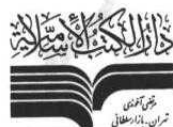 دار الكتب الإسلامية
مرتضی آخوندی
تهران - بازار سلطانی